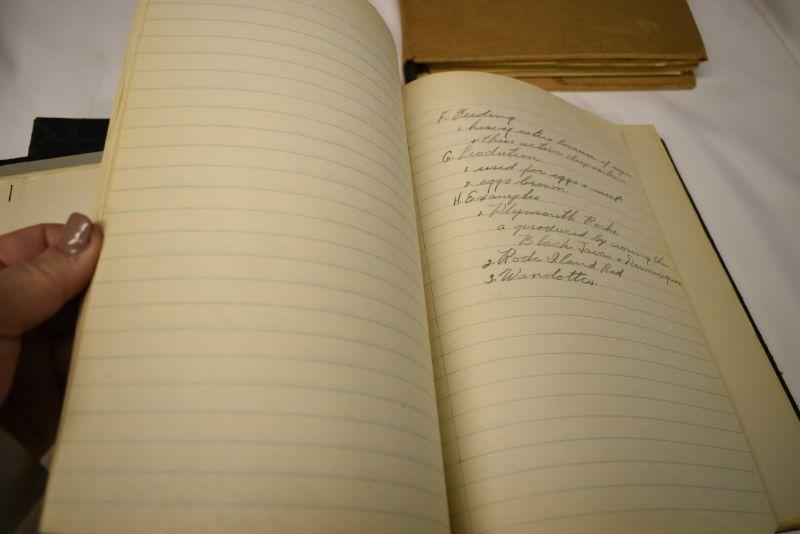 F. Feeding
1. heavy eaters because of size
+ their active disposition
G. Prodution.
1. used for eggs + meat
2. eggs brown
H. Examples
1. Plymouth Rocks
a produced by crossing the
Black Javas + Dominiques
2. Rode Iland Red
3. Wandottes.